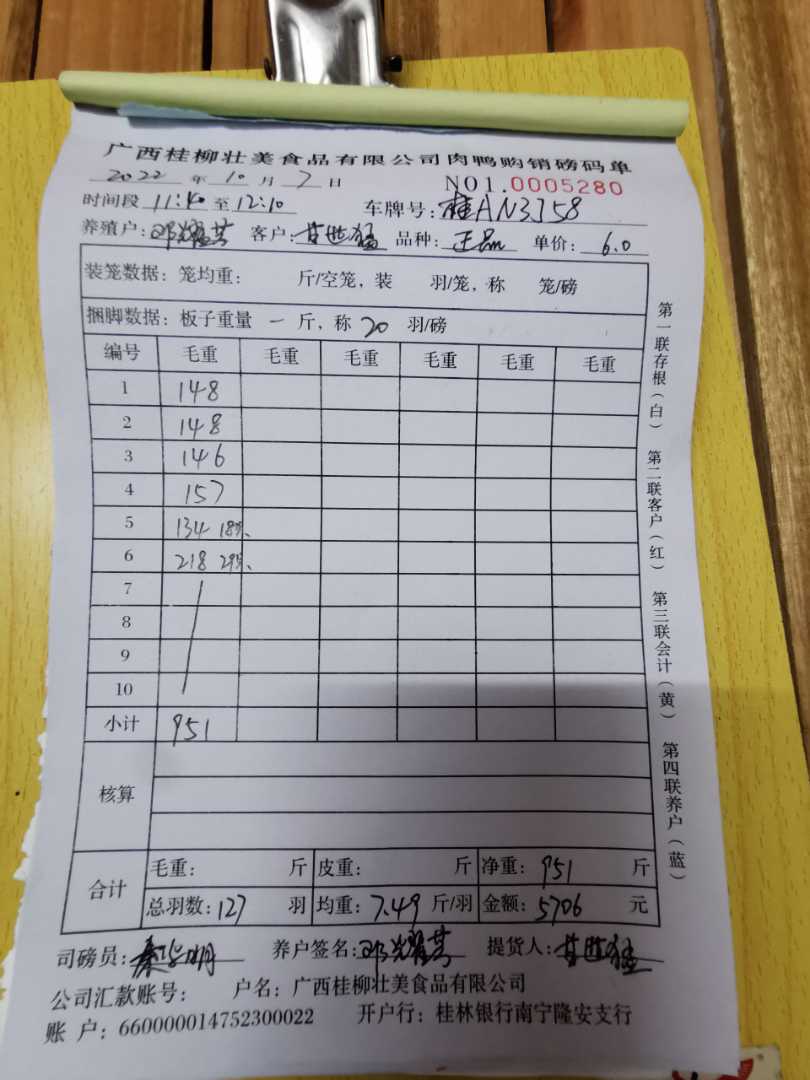 广西桂柳壮美食品有限公司肉鸭购销磅码单
2022 年 10 月 7 日 NO1.0005280
时间段 11:40 至 12:10 车牌号: 桂AN3J58
养殖户: 邓耀芬 客户: 甘世猛 品种: 正品 单价: 6.0
装笼数据: 笼均重: 斤/空笼, 装 羽/笼, 称 笼/磅
捆脚数据: 板子重量 一 斤, 称 20 羽/磅
编号 毛重 毛重 毛重 毛重 毛重 毛重
1 148
2 148
3 146
4 157
5 134 18只
6 218 29只
7
8
9
10
小计 951
核算
合计 毛重: 斤 皮重: 斤 净重: 951 斤
总羽数: 127 羽 均重: 7.49 斤/羽 金额: 5706 元
司磅员: 养户签名: 邓耀芬 提货人: 甘世猛
公司汇款账号: 户名: 广西桂柳壮美食品有限公司
账 户: 660000014752300022 开户行: 桂林银行南宁隆安支行
第一联存根(白) 第二联客户(红) 第三联会计(黄) 第四联养户(蓝)